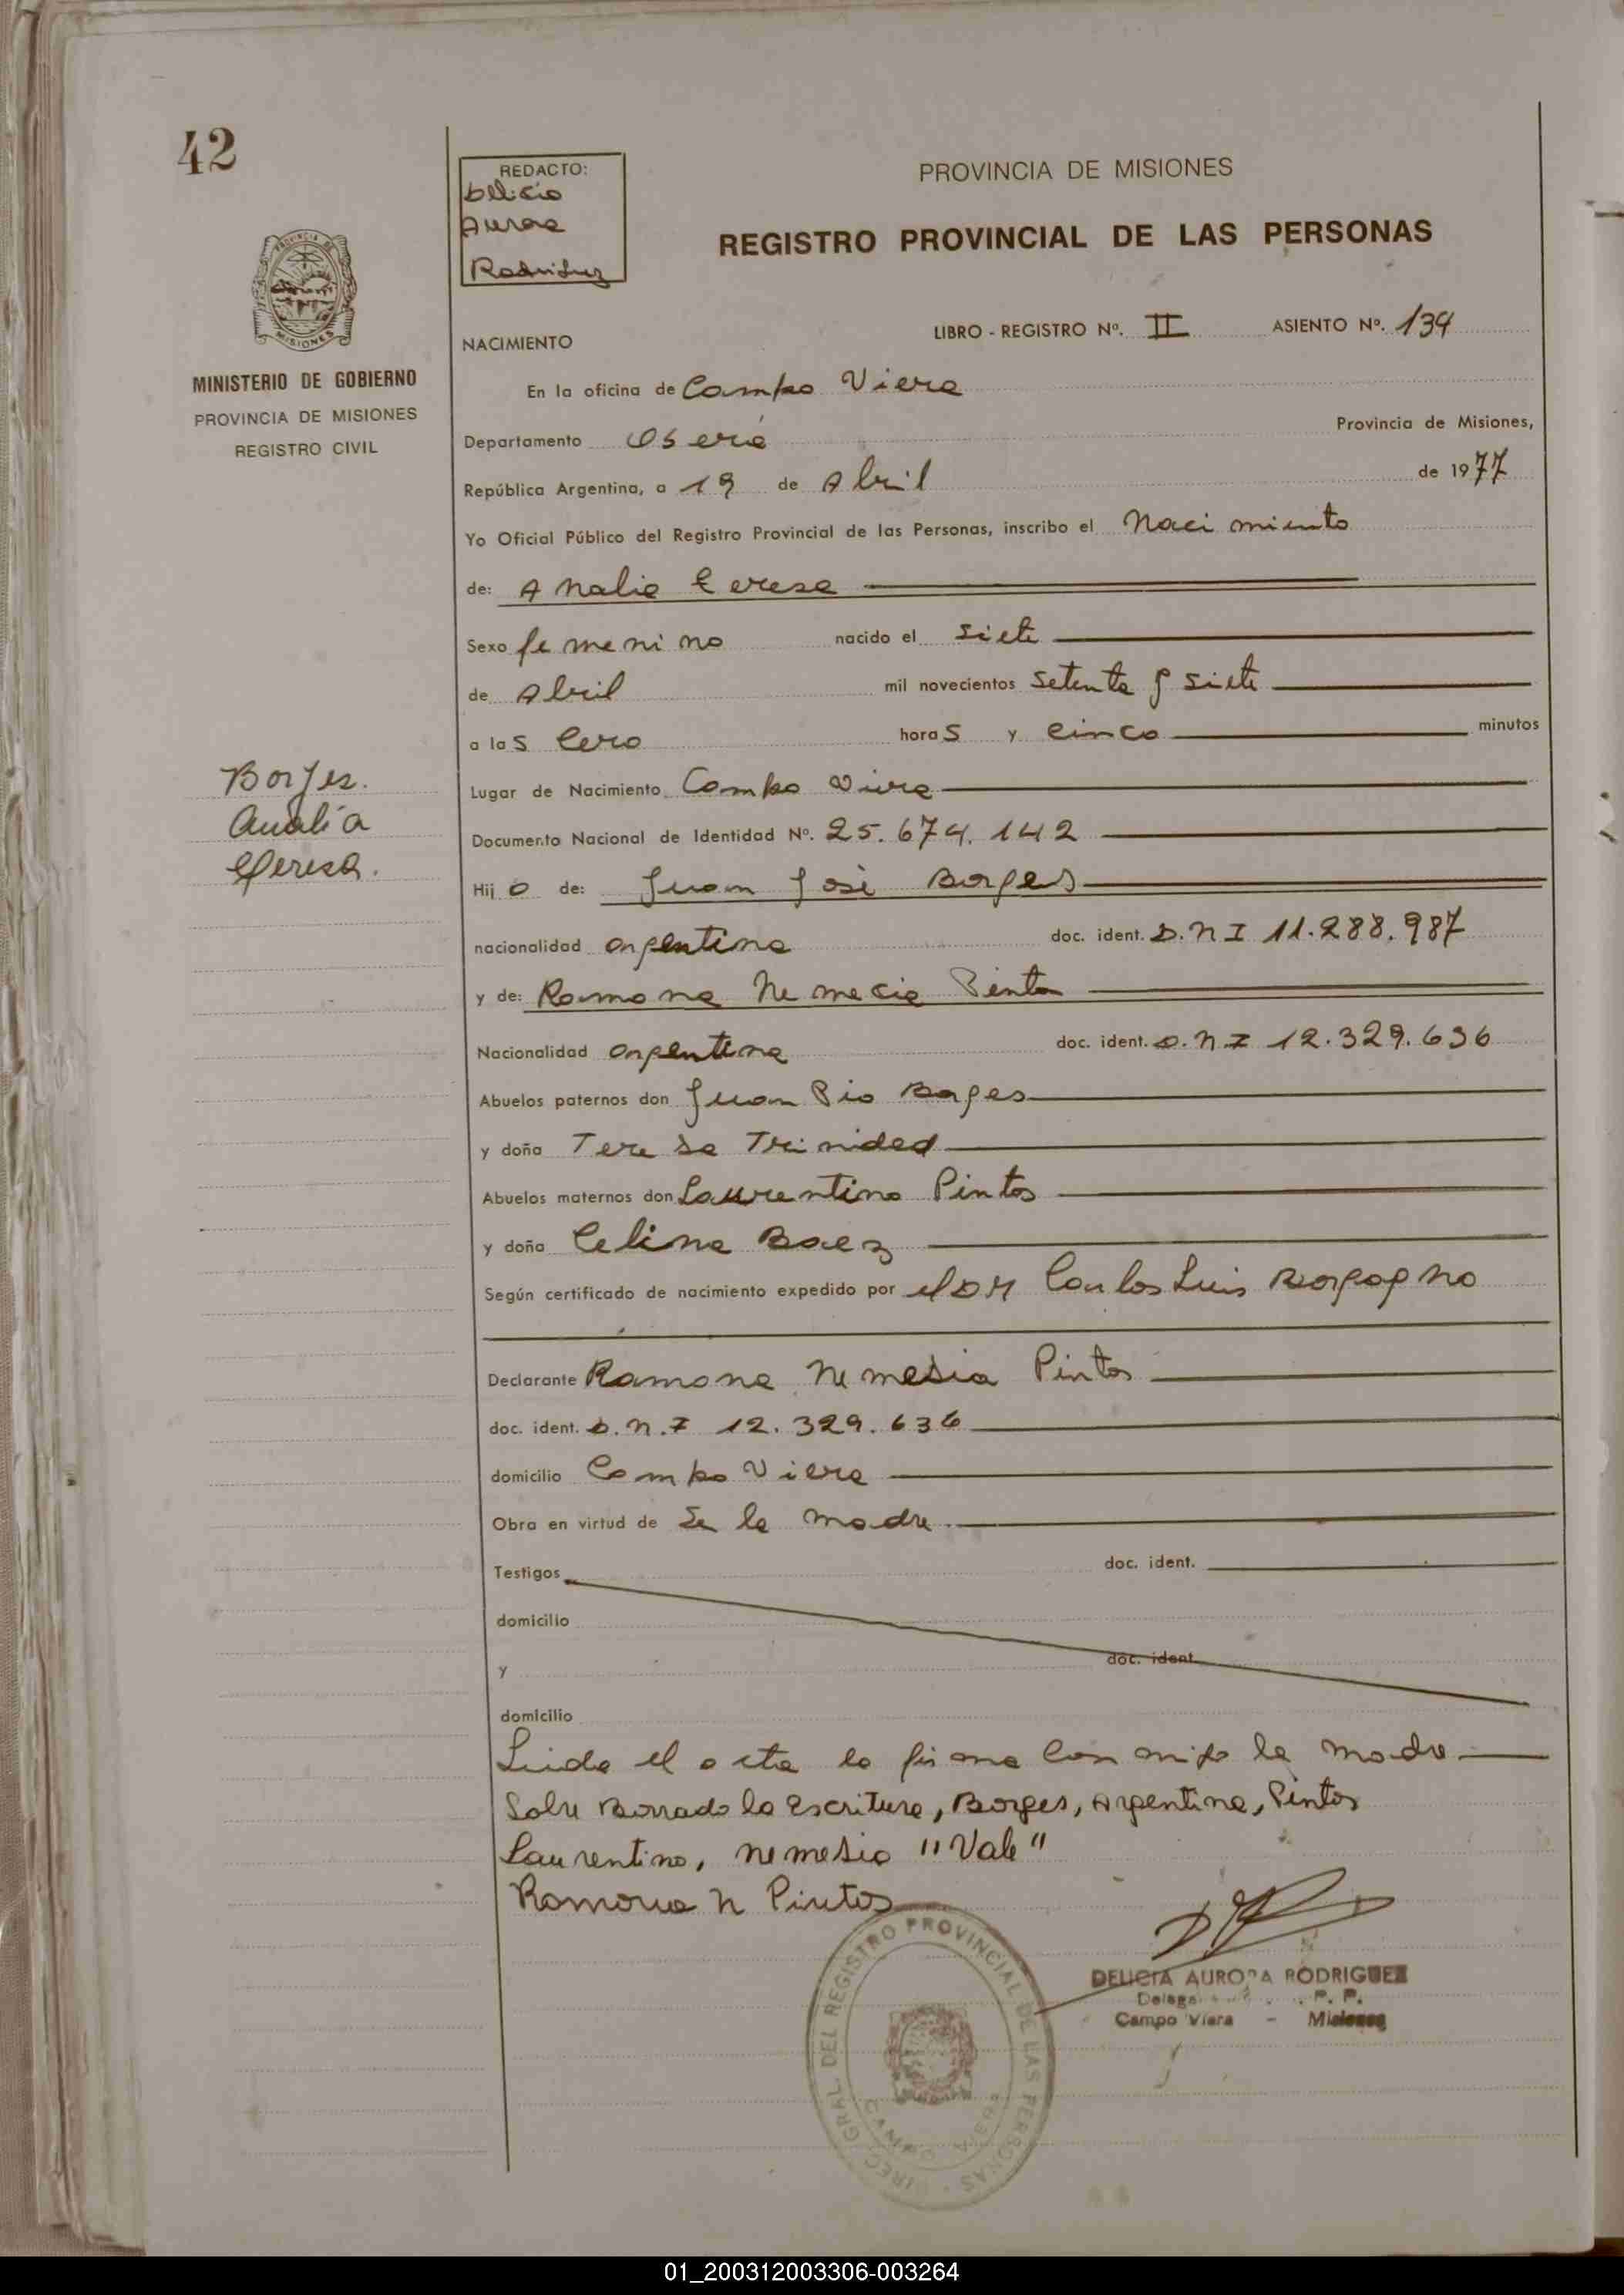 42
REDACTO:
Delicia
Aurora
Rodriguez
PROVINCIA DE MISIONES
REGISTRO PROVINCIAL DE LAS PERSONAS
PROVINCIA DE MISIONES
MINISTERIO DE GOBIERNO
PROVINCIA DE MISIONES
REGISTRO CIVIL
NACIMIENTO LIBRO - REGISTRO Nº. II ASIENTO Nº. 134
En la oficina de Campo Viera
Departamento Oberá Provincia de Misiones,
República Argentina, a 19 de Abril de 1977
Yo Oficial Público del Registro Provincial de las Personas, inscribo el Nacimiento
de: Analia teresa
Sexo femenino nacido el siete
de Abril mil novecientos setenta y siete
a las Cero horas y cinco minutos
Borges.
Analía
Teresa.
Lugar de Nacimiento Campo Viera
Documento Nacional de Identidad Nº. 25.674.142
Hijo de: Juan José Borges
nacionalidad argentina doc. ident. D.N.I 11.288.987
y de: Ramona Nemecia Pintos
Nacionalidad argentina doc. ident. D.N.I 12.329.636
Abuelos paternos don Juan Pio Borges
y doña Teresa Trinidad
Abuelos maternos don Laurentino Pintos
y doña Celina Baez
Según certificado de nacimiento expedido por el DR Carlos Luis
Declarante Ramona Nemesia Pintos
doc. ident. D.N.I 12.329.636
domicilio Campo Viera
Obra en virtud de Ser la madre
Testigos doc. ident.
domicilio
y doc. ident.
domicilio
Leida el acta la firma con migo la madre
Sobre Borrado la escritura, Borges, Argentina, Pintos
Laurentino, nemesia "Vale"
Ramona N Pintos
DIRECC. GRAL. DEL REGISTRO PROVINCIAL DE LAS PERSONAS
CAMPO VIERA
DELICIA AURORA RODRIGUEZ
Campo Viera - Misiones
01_200312003306-003264